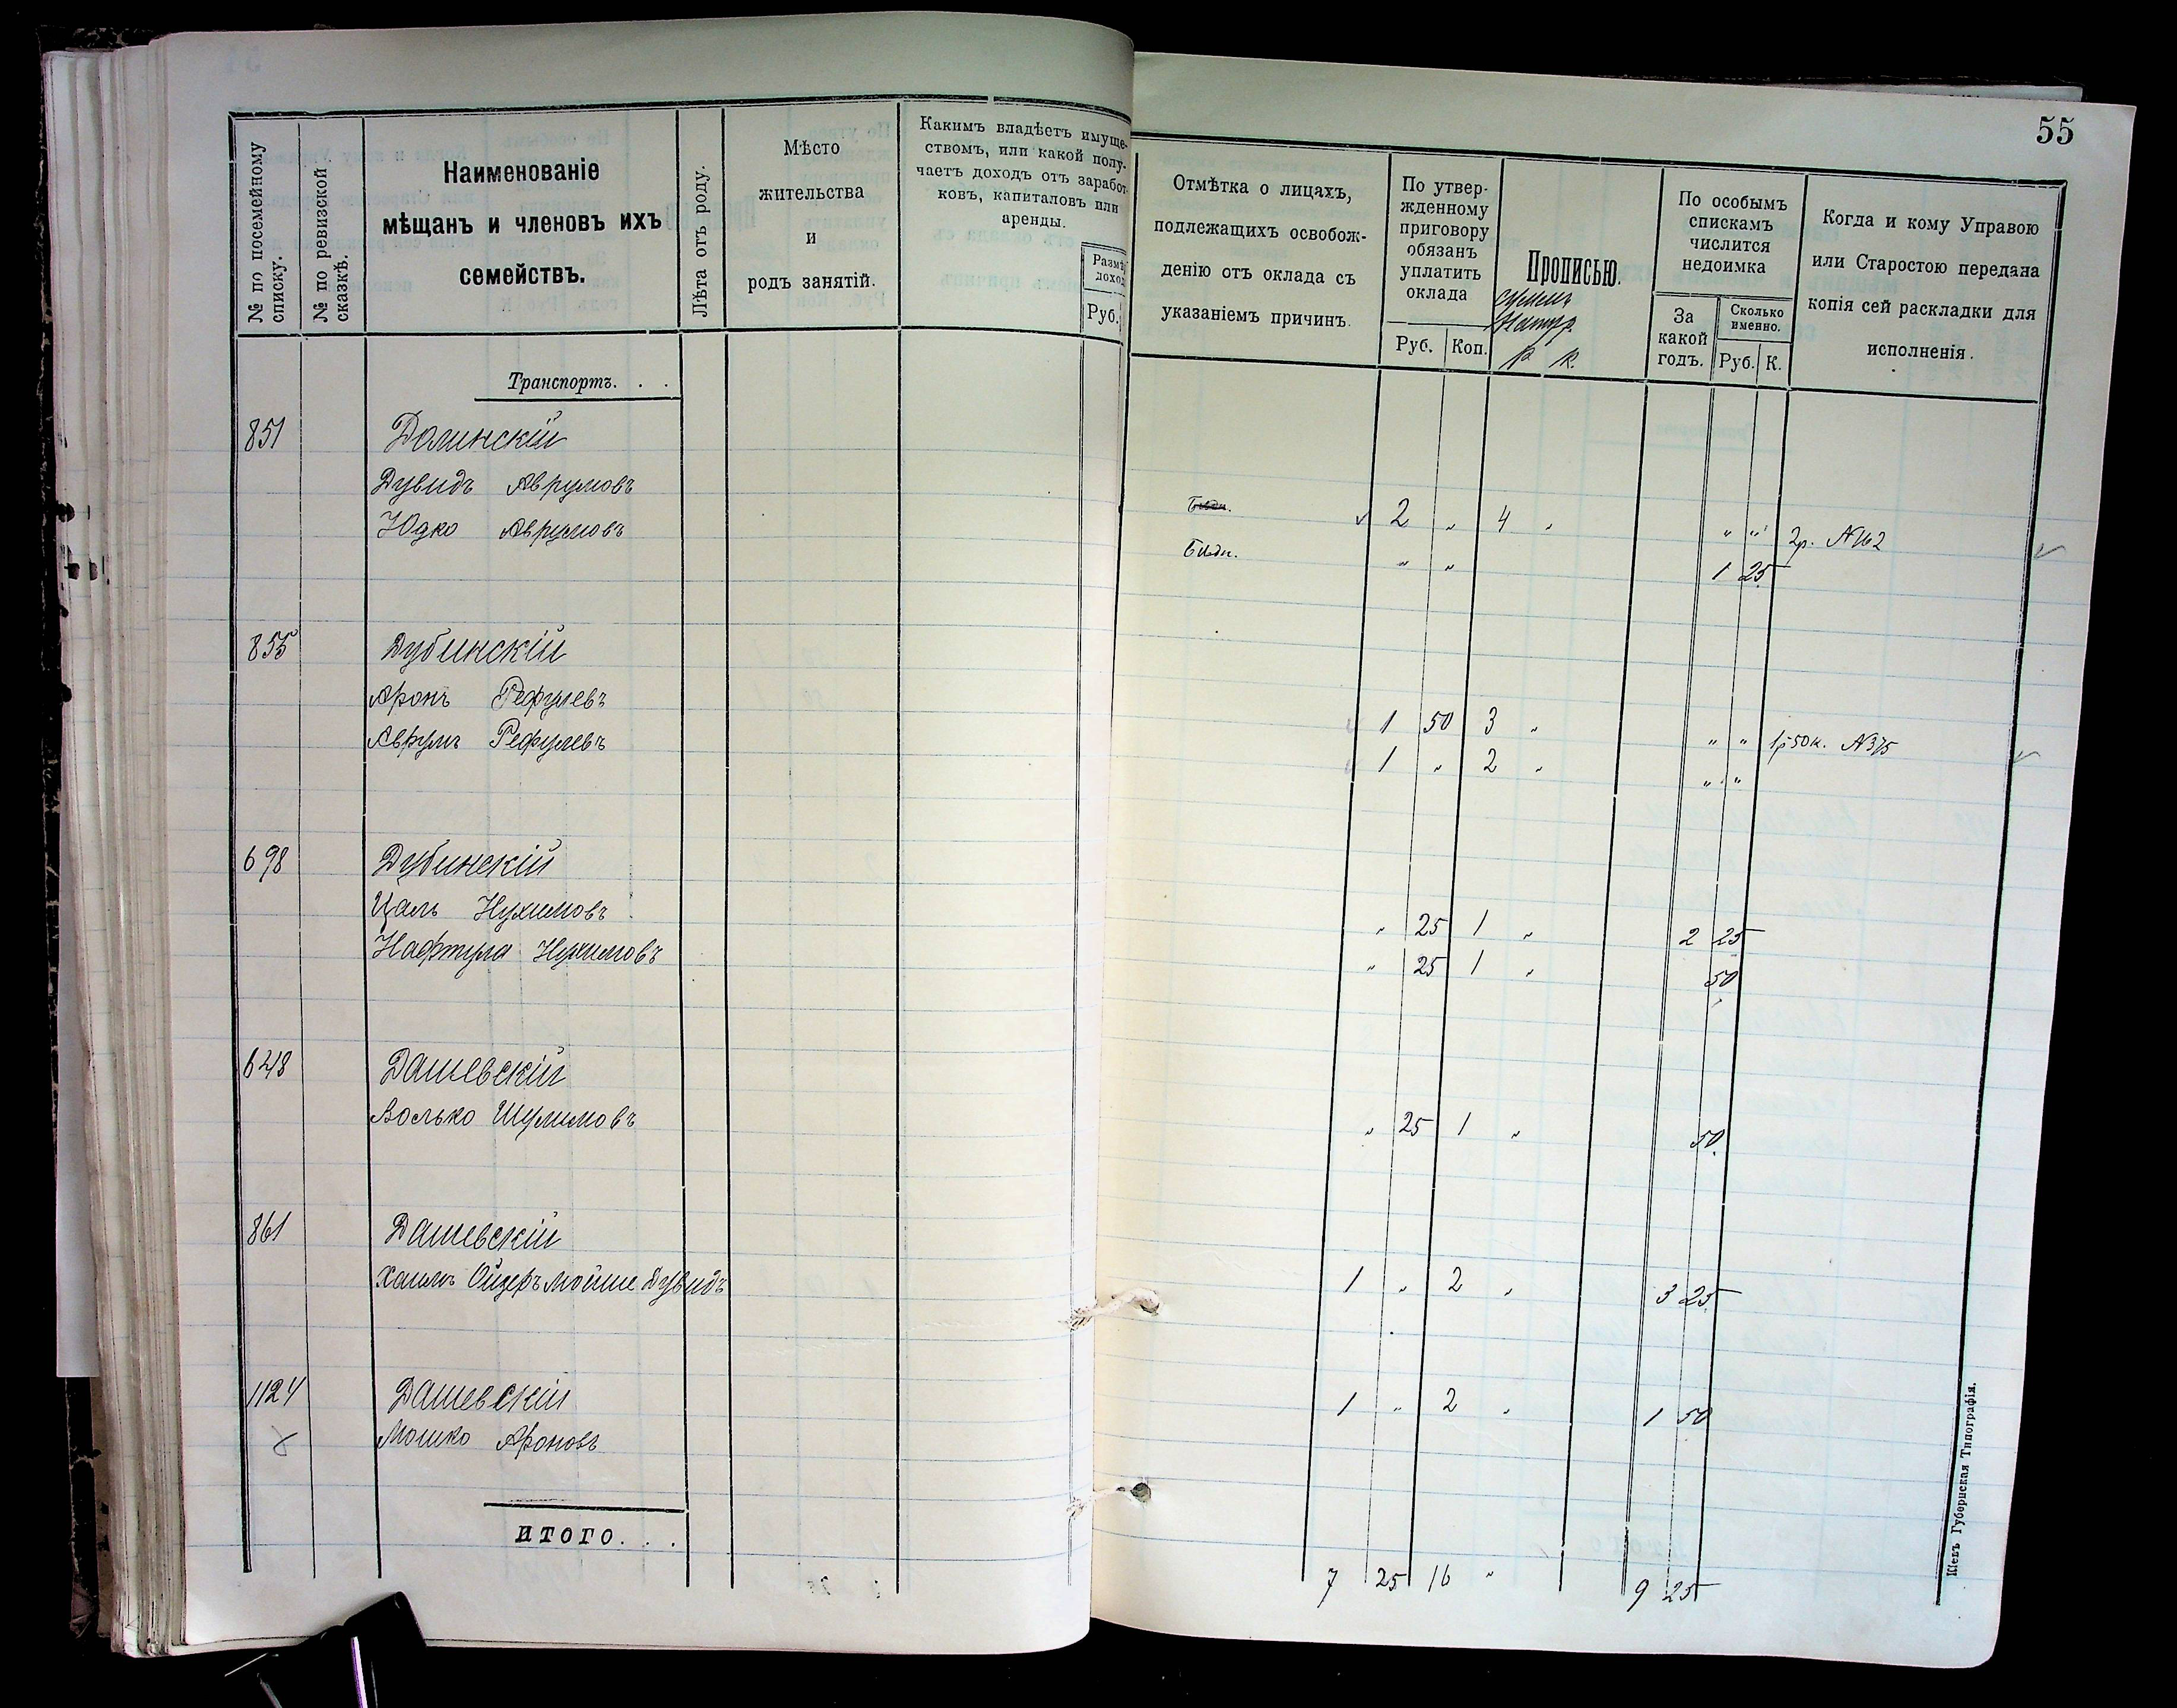 55
№ по посемейному списку.
№ по ревизской сказкѣ.
Наименованіе
мѣщанъ и членовъ ихъ
семействъ.
Лѣта отъ роду.
Мѣсто
жительства
и
родъ занятій.
Какимъ владѣетъ имуще-
ствомъ, или какой полу-
чаетъ доходъ отъ заработ-
ковъ, капиталовъ или
аренды.
Размѣ
доход
Руб.
Отмѣтка о лицахъ,
подлежащихъ освобож-
денію отъ оклада съ
указаніемъ причинъ.
По утвер-
жденному
приговору
обязанъ
уплатить
оклада
Руб. Коп.
Прописью.
р. к.
По особымъ
спискамъ
числится
недоимка
За
какой
годъ.
Сколько
именно.
Руб. К.
Когда и кому Управою
или Старостою передана
копія сей раскладки для
исполненія.
Транспортъ. . .
851 Долинскій
Дувидъ Аврумовъ Бѣдн. 2 " 4 " " " 2р. N162
Юдко Аврумовъ Бѣдн. " " 1 25
855 Дубинскій
Аронъ Рефулевъ 1 50 3 " " " 1р50к. N375
Аврумъ Рефулевъ 1 " 2 " " "
698 Дубинскій
Цаль Нухимовъ " 25 1 " 2 25
Нафтула Нухимовъ " 25 1 " 50
648 Дашевскій
Волько Шулимовъ " 25 1 " 50
861 Дашевскій
Хаимъ Ойзеръ Мойше Дувидъ 1 " 2 " 3 25
1124 Дашевскій 1 " 2 " 1 50
Мошко Ароновъ
ИТОГО. . . 7 25 16 " 9 25
Кіевъ Губернская Типографія.